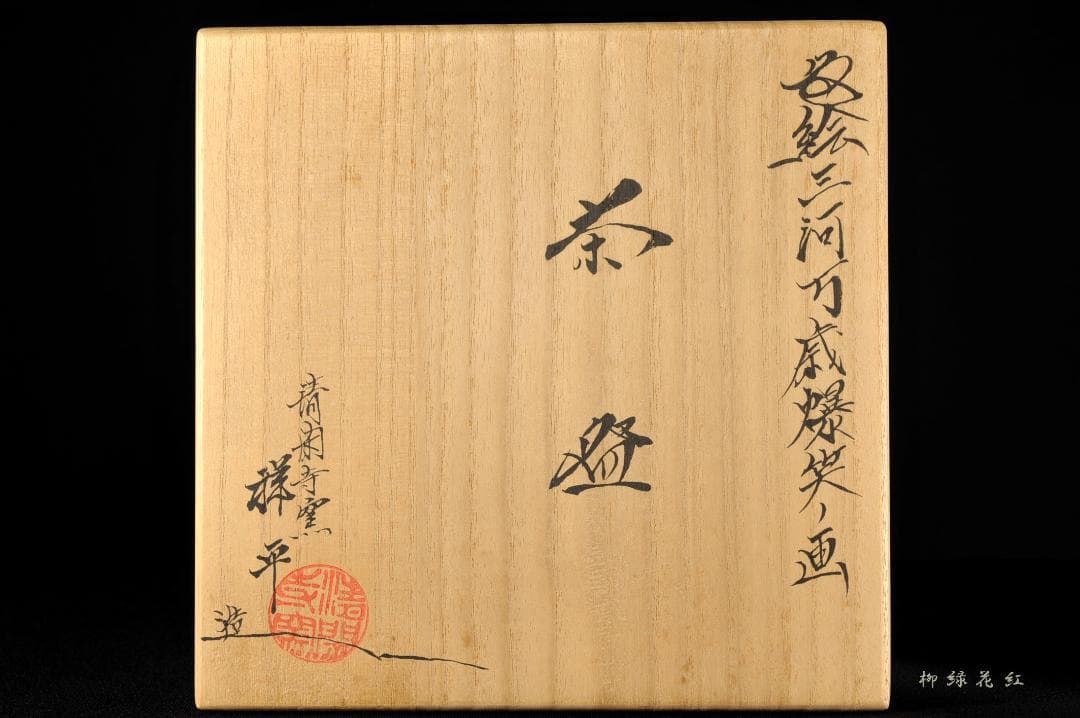 安絵三河万歳爆笑ノ画
茶盌
清閑寺窯
祥平
造
清閑寺窯
柳緑花紅